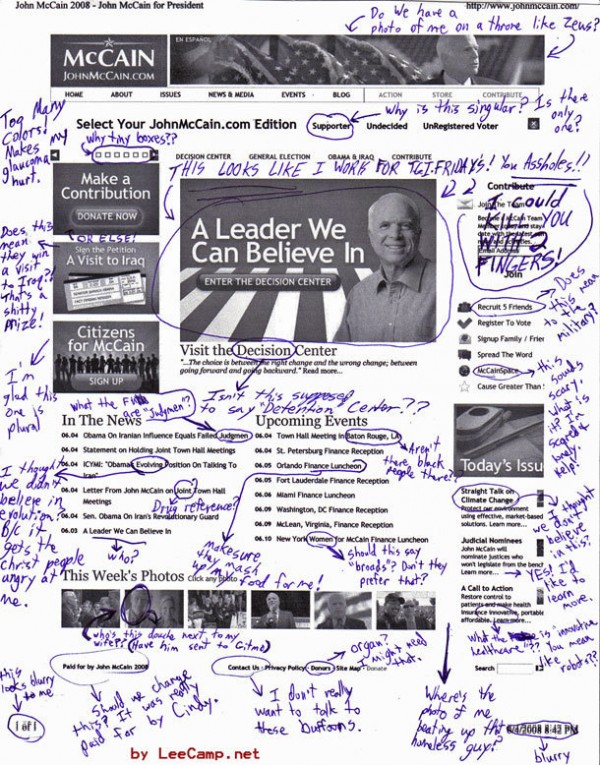 John McCain 2008 - John McCain for President
http://www.johnmccain.com/
Do We have a
photo of me on a throne like Zeus?
EN ESPAÑOL
McCAIN
JOHNMCCAIN.COM
HOME ABOUT ISSUES NEWS & MEDIA EVENTS BLOG ACTION STORE CONTRIBUTE
Why is this singular? Is there
only
one?
Select Your JohnMcCain.com Edition Supporter Undecided UnRegistered Voter
Too Many
Colors!
Makes my
glaucoma
hurt.
Why tiny boxes??
DECISION CENTER GENERAL ELECTION OBAMA & IRAQ CONTRIBUTE
THIS LOOKS LIKE I WORK FOR T.G.I. FRIDAYS! You Assholes!!
Make a
Contribution
DONATE NOW
OR ELSE!
Sign the Petition
A Visit to Iraq
Does this
mean
they win
a visit
to Iraq??
What's a
shitty
prize!
Citizens
for McCain
SIGN UP
I'm
glad this
one is
plural
A Leader We
Can Believe In
ENTER THE DECISION CENTER
Visit the Decision Center
"...The choice is between the right change and the wrong change; between
going forward and going backward." Read more...
Isn't this supposed
to say "Detention Center"??
Contribute
Join The Team
Become a McCain Team
date with the latest
Email Address
Join
I Could
YOU
WITH 2
FINGERS!
Recruit 5 Friends
Register To Vote
Signup Family / Frie
Spread The Word
McCainSpace
Cause Greater Than
Does
this mean
to the
military?
this
sounds
scary.
What is
it? I'm
scared &
lonely.
Help!
What the
are "Judgmen"?
In The News
06.04 Obama On Iranian Influence Equals Failed Judgmen
06.04 Statement on Holding Joint Town Hall Meetings
06.04 ICYMI: "Obama's Evolving Position on Talking To
Iran"
06.04 Letter From John McCain on Joint Town Hall
Meetings
06.04 Sen. Obama On Iran's Revolutionary Guard
06.03 A Leader We Can Believe In
Drug reference?
who?
I thought
we didn't
believe in
evolution?
B/c it
gets the
christ people
angry at
me.
Upcoming Events
06.04 Town Hall Meeting in Baton Rouge, LA
06.04 St. Petersburg Finance Reception
06.05 Orlando Finance Luncheon
06.05 Fort Lauderdale Finance Reception
06.06 Miami Finance Luncheon
06.09 Washington, DC Finance Reception
06.09 McLean, Virginia, Finance Reception
06.10 New York Women for McCain Finance Luncheon
Aren't
there black
people there??
make sure
they mash
up my
food for me!
should this say
"broads"? Don't they
prefer that?
Today's Issu
Straight Talk on
Climate Change
Protect our environment
using effective, market-based
solutions. Learn more...
Judicial Nominees
John McCain will
nominate Justices who
won't legislate from the bench
Learn more...
A Call to Action
Restore control to
patients and make health
insurance innovative, portable
affordable. Learn more...
I thought
we don't
believe
in this?
YES! I'd
like to
learn
more.
What the is "innovative
healthcare"?? You mean
like robots??
This Week's Photos click any photo
who's this douche next to my
wife?? (Have him sent to Gitmo)
organ?
I might need
that.
Paid for by John McCain 2008
Contact Us · Privacy Policy · Donors · Site Map · Donate
Search
this
looks blurry
to me.
1 of 1
Should we change
this? It was really
paid for by Cindy.
I don't really
want to talk
to these buffoons.
Where's the
photo of me
beating up that
homeless guy?
6/4/2008 8:42 PM
blurry
by LeeCamp.net